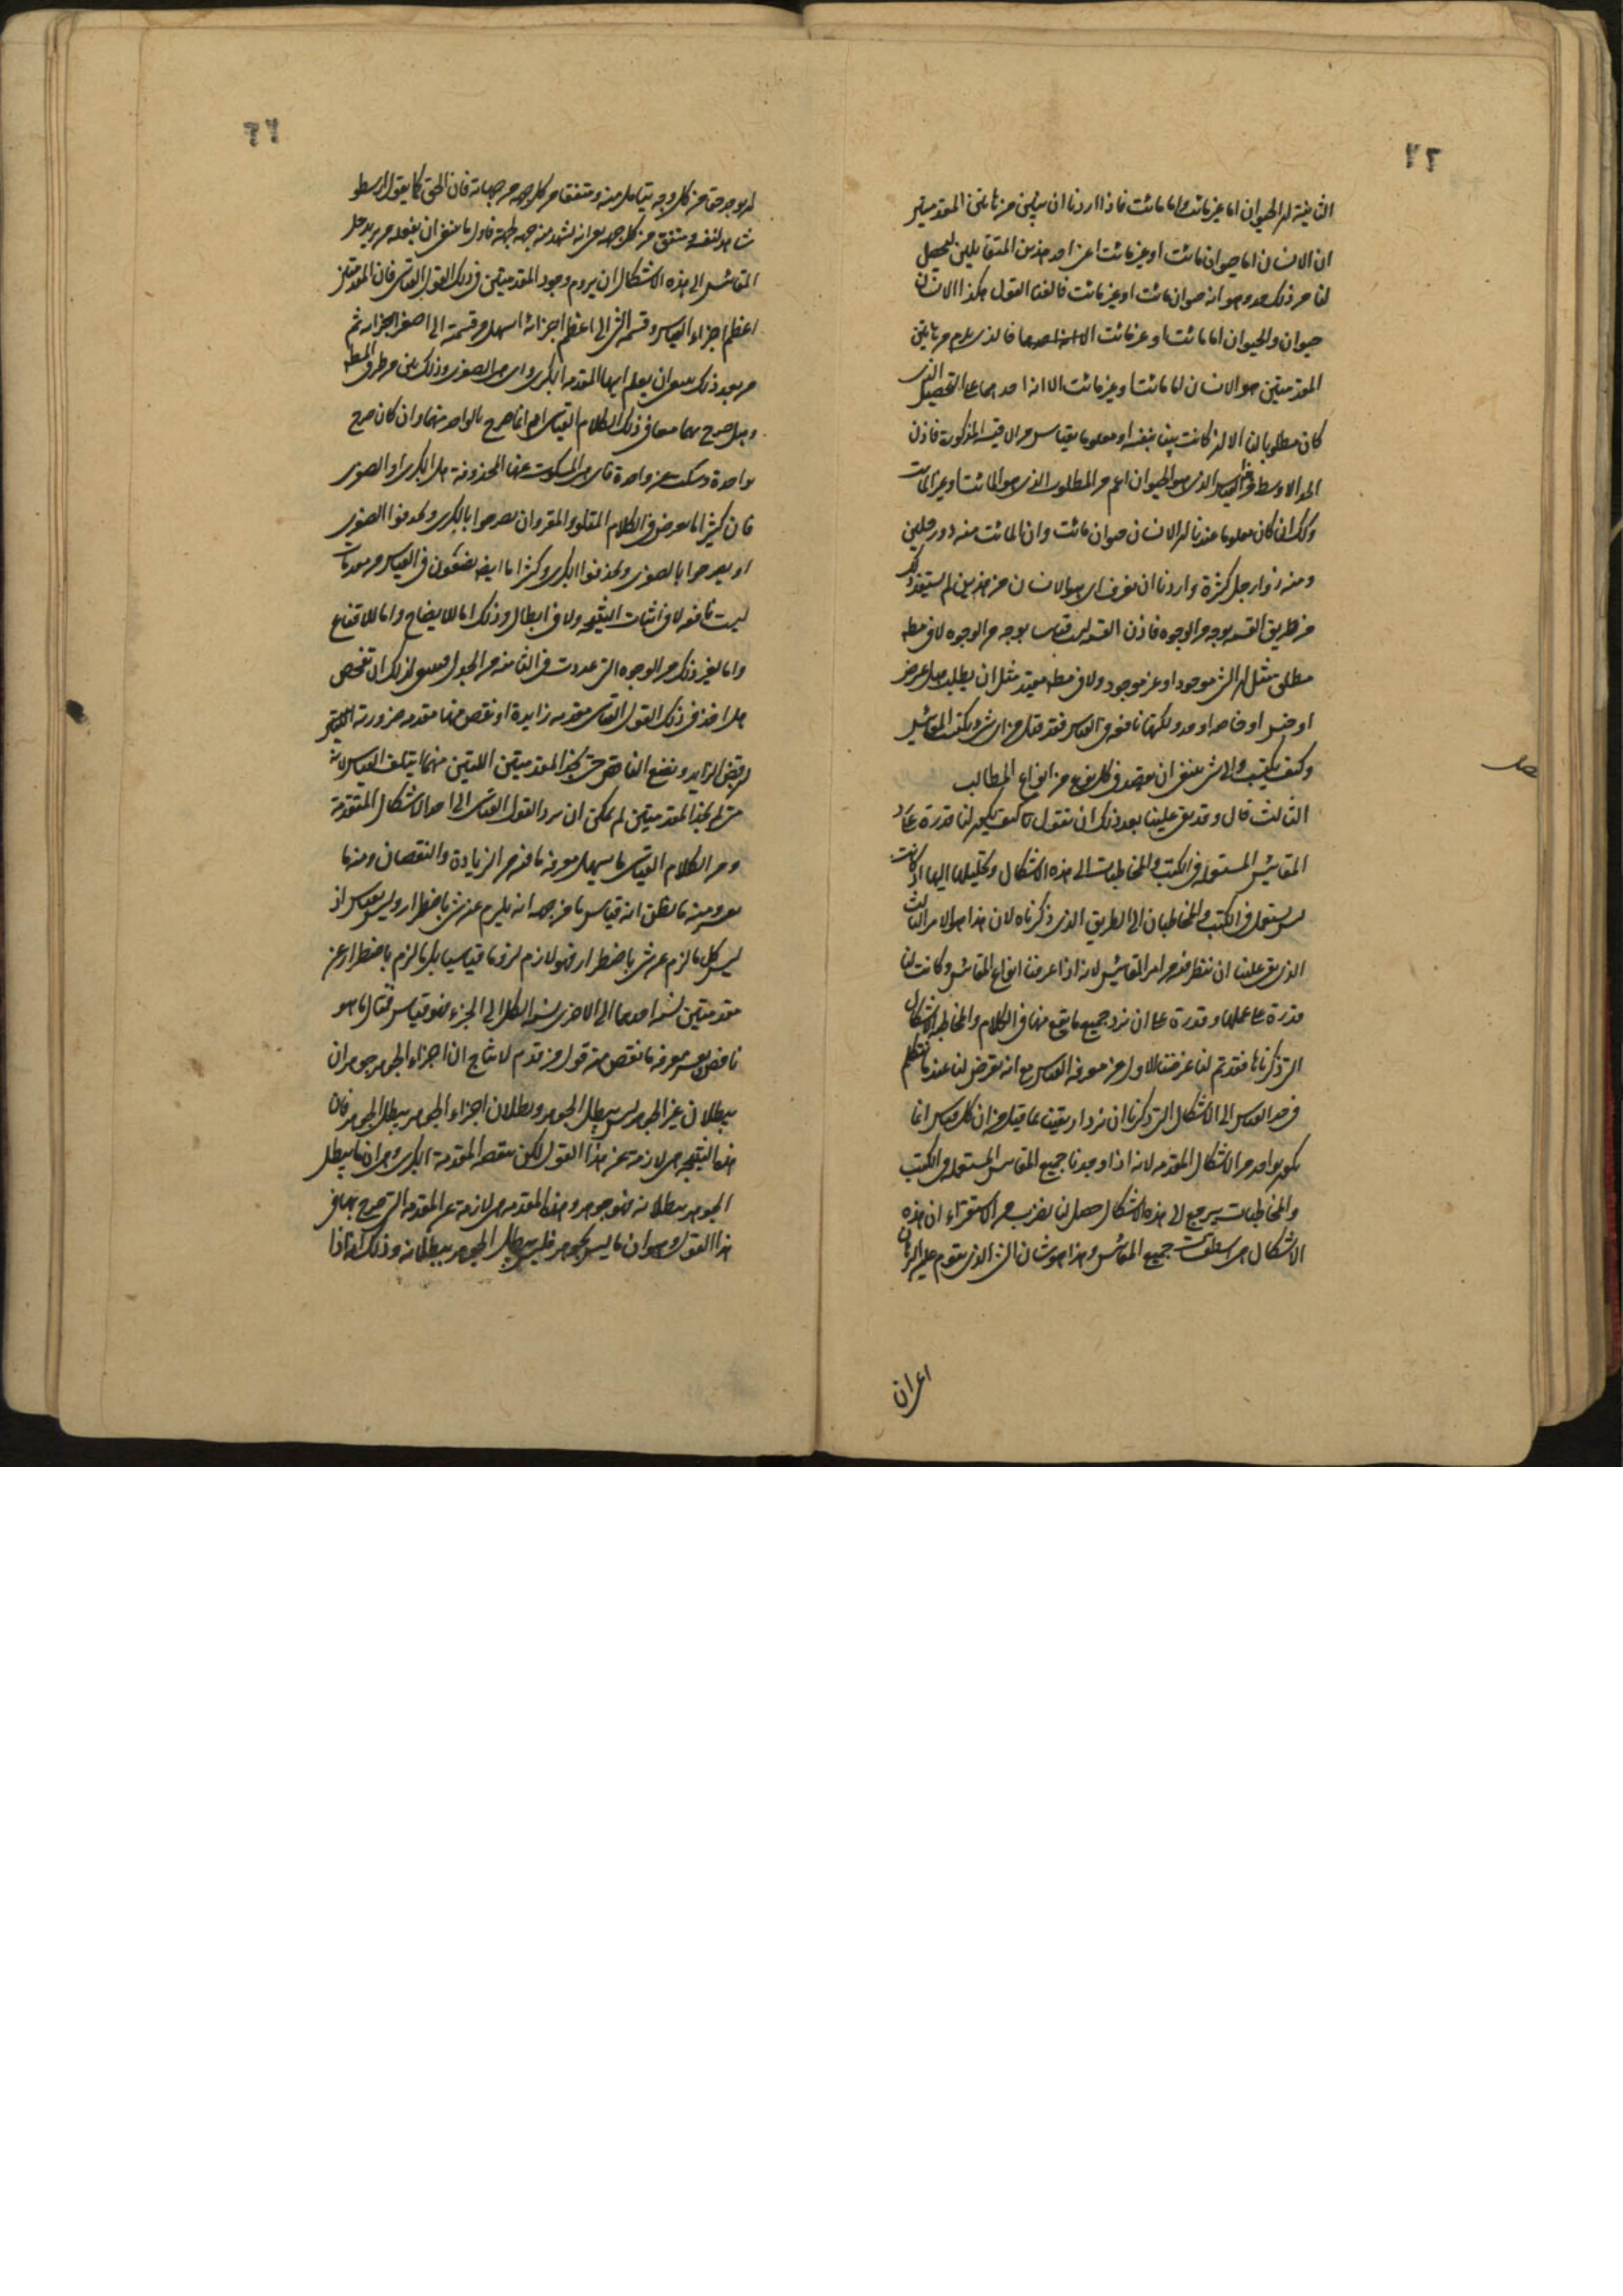 ٢٦
الثانية ان الحيوان اما غير مائت واما مائت فاذا اردنا ان يبين من هاتين المقدمتين
ان الانسان اما حيوان مائت او غير مائت اعنى احد هذين المتقابلين ليحصل
لنا من ذلك حده وهو انه حيوان مائت او غير مائت فالفنا القول هكذا الانسان
حيوان والحيوان اما مائت او غير مائت الا انه احدهما فالذى يلزم من هاتين
المقدمتين هو الانسان اما مائت او غير مائت الا انه احدهما على التحصيل الذى
كان مطلوبا لنا الا ان كانت بينا بنفسه او معلوما بقياس من الاقيسة المذكورة فاذن
الحد الاوسط فى القياس الذى هو الحيوان اعم من المطلوب الذى هو المائت او غير المائت
وكك ان كان معلوما عندنا ان الانسان حيوان مائت وان المائت منه ذو رجلين
ومنه ذو ارجل كثيرة واردنا ان نعرف اى هو الانسان من هذين لم يستفد ذلك
من طريق القسمة بوجه من الوجوه فاذن القسمة ليست قياسا بوجه من الوجوه لا فى مطلب
مطلق مثل ان الشئ موجود او غير موجود ولا فى مطلب مقيد مثل ان يطلب هل هو عرض
او جنس او خاصه او حد ولكنها نافعة فى القياس فقد قيل من اى شئ يكتسب المقائيس
وكيف يكتسب والى شئ ينبغى ان يقصد فى كل نوع من انواع المطالب
الثالث قال وقد بقى علينا بعد ذلك ان نقول كيف يكون لنا قدرة على رد
المقائيس المستعملة فى الكتب والمخاطبات الى هذه الاشكال وتحليلها اليها اذ كانت
ليس تستعمل فى الكتب والمخاطبات الى الطريق الذى ذكرناه لان هذا هو الامر الثالث
الذى بقى علينا ان ننظر فيه من امر المقائيس لانه اذا عرفنا انواع المقائيس وكانت لنا
قدرة على عملها وقدرة على ان نرد جميع ما يقع منها فى الكلام والمخاطبة الى الاشكال
التى ذكرناها فقد تم لنا غرضنا الاول من معرفة القياس مع انه يعرض لنا عند ما نتكلم
فى رد القياس الى الاشكال التى ذكرنا ان نزداد يقينا بما قيل من ان كل قياس انما
يكون بواحد من الاشكال المقدمة لانه اذا وجدنا جميع المقائيس المستعملة فى الكتب
والمخاطبات يرجع الى هذه الاشكال حصل لنا بضرب من الاستقراء ان هذه
الاشكال هى اسطقسات جميع المقائيس وهذا هو شان الشئ الذى يقوم عليه البرهان
اعنى ان
٢٧
ان يوجد حقا من كل وجه يتامل منه ومتفقا من كل جهة من جهاته فان الحق كما يقول ارسطو
شاهد لنفسه ومتفق من كل جهة يعنى انه يشهد منه جهة لجهة فاول ما ينبغى ان يفعله من يريد حل
المقائيس الى هذه الاشكال ان يروم وجود المقدمتين فى ذلك القول القياسى فان المقدمتين
اعظم اجزاء القياس وقسمة الشئ الى اعظم اجزائه اسهل من قسمته الى اصغر اجزائه ثم
من بعد ذلك ينبغى ان يعلم ايها المقدمة الكبرى واى هى الصغرى وذلك يبين من طرفى المطلب
وهل صرح بهما معا فى ذلك الكلام القياسى ام انما صرح بالواحد منهما وان كان صرح
بواحدة وسكت عن واحدة فاى هى المسكوت عنها المحذوفة هل الكبرى او الصغرى
فان كثيرا ما يعرض فى الكلام المقلو والمقروان يصرحوا بالكبرى ويحذفوا الصغرى
او يصرحوا بالصغرى ويحذفوا الكبرى وكثيرا ما ايضا يضعون فى القياس مقدمات
ليست نافعة لا فى اثبات النتيجة ولا فى ابطال وذلك اما للايضاح واما للاقناع
واما لغير ذلك من الوجوه التى عددت فى الثامنة من الجدل فينبغى لذلك ان نفحص
هل اخذ فى ذلك القول القياسى مقدمة زايدة او نقص منها مقدمة ضرورية النتيجة
لرفض الزايد ونضع الناقص حتى نجد المقدمتين اللتين منهما ايتلف القياس لانه
متى لم نجد المقدمتين لم يمكن ان نرد القول القياسى الى احد الاشكال المتقدمة
ومن الكلام القياسى ما يسهل معرفة ما فيه من الزيادة والنقصان ومنه ما
يعسر ومنه ما يظن انه قياس ما من جهة انه يلزم عنه شئ باضطرار وليس بقياس اذ
ليس كل ما لزم عن شئ باضطرار فهو لازم لزوما قياسيا بل ما لزم باضطرار عن
مقدمتين نسبة احدهما الى الاخرى نسبة الكل الى الجزء فهو قياس فمثال ما هو
ناقص يعسر معرفة ما نقص منه قول من تقدم لانتاج ان اجزاء الجوهر جوهر ان
بطلان غير الجوهر ليس يبطل الجوهر وبطلان اجزاء الجوهر يبطل الجوهر فان
هذه النتيجة هى لازمة عن هذا القول لكن ينقصه المقدمة الكبرى وهى ان ما يبطل
الجوهر ببطلانه فهو جوهر وهذه المقدمة هى لازمة عن المقدمة التى صرح بها فى
هذا القول وهو ان ما ليس بجوهر فليس يبطل الجوهر ببطلانه وذلك انه اذا